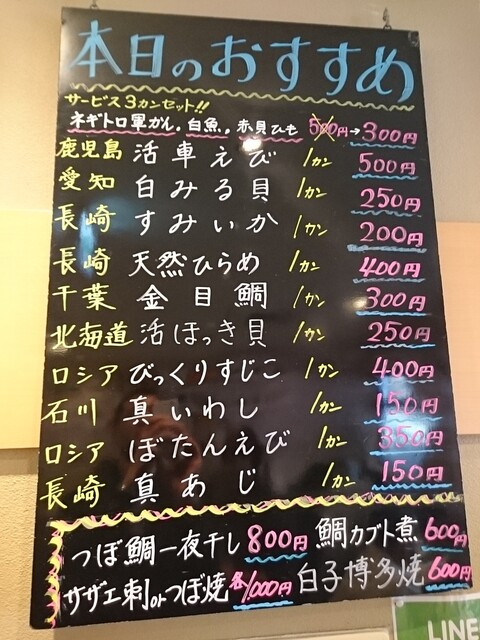 本日のおすすめ
サービス3カンセット!!
ネギトロ軍カん。白魚。赤貝ひも 500円→300円
鹿児島 活車えび 1カン 500円
愛知 白みる貝 1カン 250円
長崎 すみいか 1カン 200円
長崎 天然ひらめ 1カン 400円
千葉 金目鯛 1カン 300円
北海道 活ほっき貝 1カン 250円
ロシア びっくりすじこ 1カン 400円
石川 真いわし 1カン 150円
ロシア ぼたんえび 1カン 350円
長崎 真あじ 1カン 150円
つぼ鯛一夜干し 800円 鯛カブト煮 600円
サザエ刺orつぼ焼 各1,000円 白子博多焼 600円
LINE